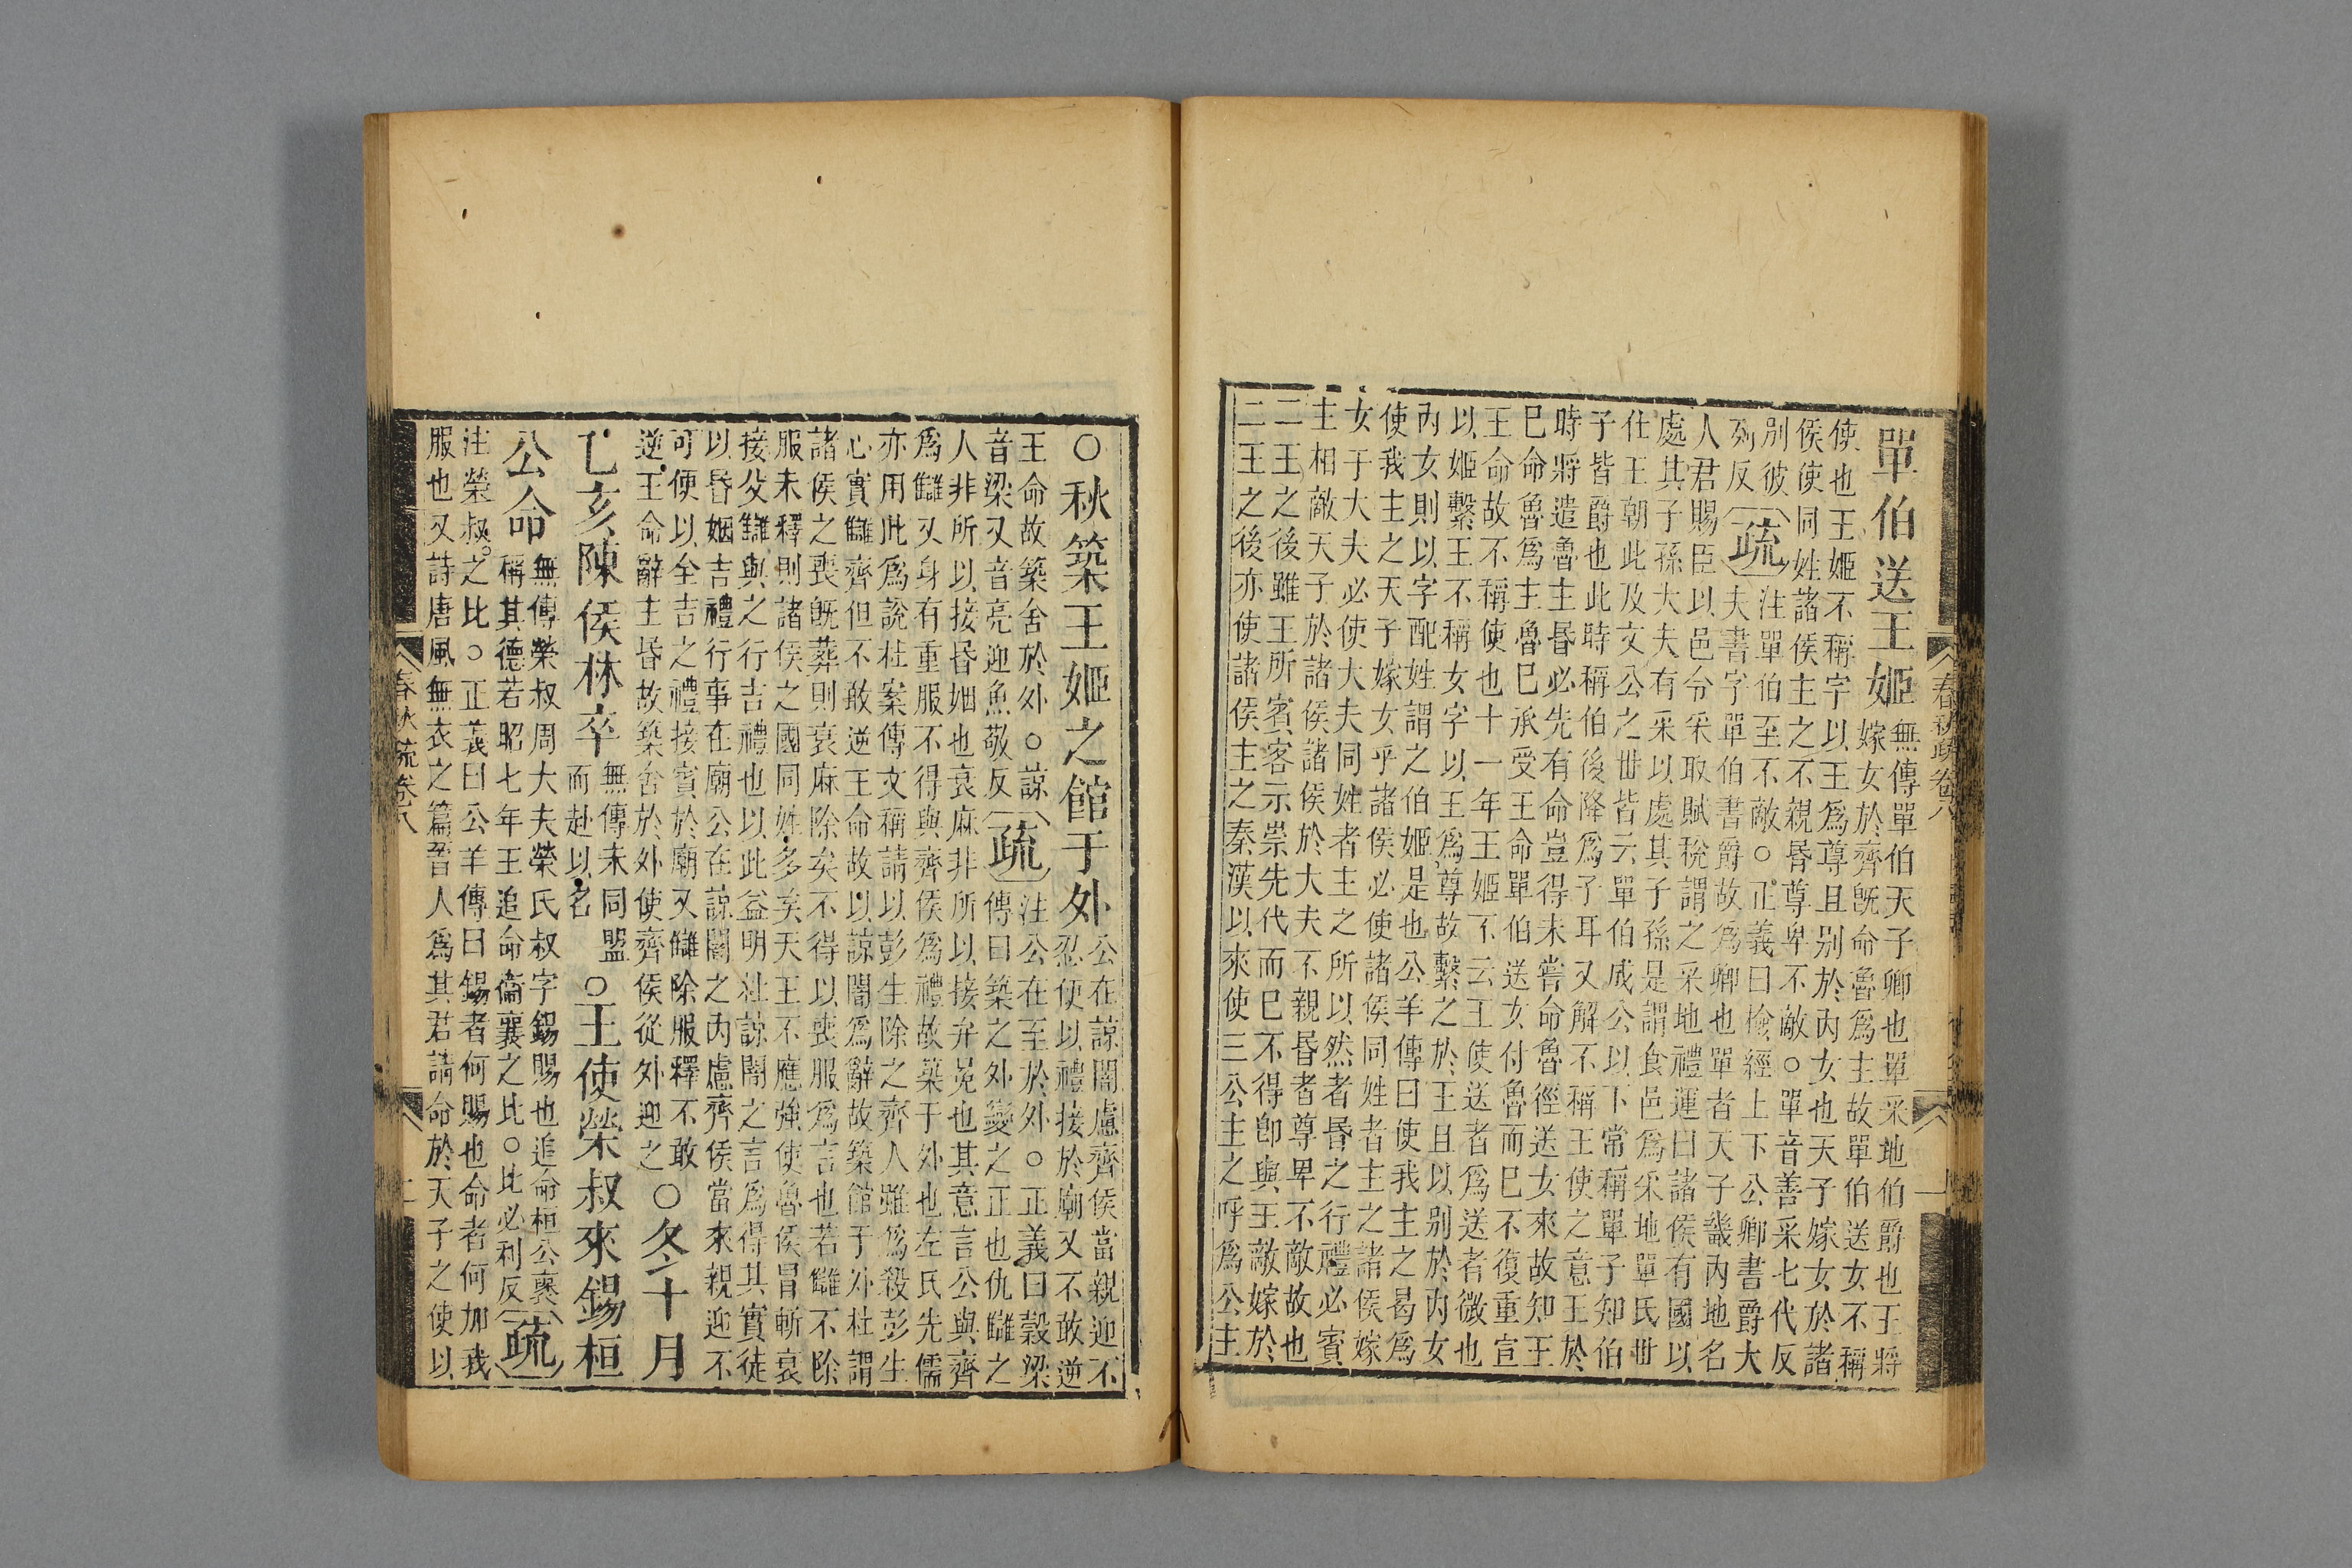 春秋疏卷八
一
單伯送王姬
無傳單伯天子卿也單采地伯爵也王將
嫁女於齊旣命魯爲主故單伯送女不稱
使也王姬不稱字以王爲尊且别於內女也天子嫁女於諸
侯使同姓諸侯主之不親昬尊卑不敵○單音善采七代反
别彼
列反
疏
注單伯至不敵○正義曰檢經上下公卿書爵大
夫書字單伯書爵故爲卿也單者天子畿內地名
人君賜臣以邑令采取賦稅謂之采地禮運曰諸侯有國以
處其子孫大夫有采以處其子孫是謂食邑爲采地單氏世
仕王朝此及文公之世皆云單伯成公以下常稱單子知伯
子皆爵也此時稱伯後降爲子耳又解不稱王使之意王於
時將遣魯主昬必先有命豈得未嘗命魯徑送女來故知王
巳命魯爲主魯巳承受王命單伯送女付魯而巳不復重宣
王命故不稱使也十一年王姬不云王使送者爲送者微也
以姬繫王不稱女字以王爲尊故繫之於王且以别於內女
內女則以字配姓謂之伯姬是也公羊傳曰使我主之曷爲
使我主之天子嫁女乎諸侯必使諸侯同姓者主之諸侯嫁
女于大夫必使大夫同姓者主之所以然者昬之行禮必賓
主相敵天子於諸侯諸侯於大夫不親昬者尊卑不敵故也
二王之後雖王所賓客示崇先代而巳不得卽與王敵嫁於
二王之後亦使諸侯主之秦漢以來使三公主之呼爲公主
○秋築王姬之館于外
公在諒闇慮齊侯當親迎不
忍便以禮接於廟又不敢逆
王命故築舍於外○諒
音梁又音亮迎魚敬反
疏
注公在至於外○正義曰穀梁
傳曰築之外變之正也仇讎之
人非所以接昬姻也衰麻非所以接弁冕也其意言公與齊
爲讎又身有重服不得與齊侯爲禮故築于外也左氏先儒
亦用此爲說杜案傳文稱請以彭生除之齊人雖爲殺彭生
心實讎齊但不敢逆王命故以諒闇爲辭故築館于外杜謂
諸侯之喪旣葬則衰麻除矣不得以喪服爲言也若讎不除
服未釋則諸侯之國同姓多矣天王不應強使魯侯冒斬衰
接父讎與之行吉禮也以此益明杜諒闇之言爲得其實徒
以昬姻吉禮行事在廟公在諒闇之內慮齊侯當來親迎不
可便以全吉之禮接賓於廟又讎除服釋不敢
逆王命辭主昬故築舍於外使齊侯從外迎之
○冬十月
乙亥陳侯林卒
無傳未同盟
而赴以名
○王使榮叔來錫桓
公命
無傳榮叔周大夫榮氏叔字錫賜也追命桓公褒
稱其德若昭七年王追命衞襄之比○比必利反
疏
注榮叔之比○正義曰公羊傳曰錫者何賜也命者何加我
服也又詩唐風無衣之篇晉人爲其君請命於天子之使以
春秋疏卷八
二